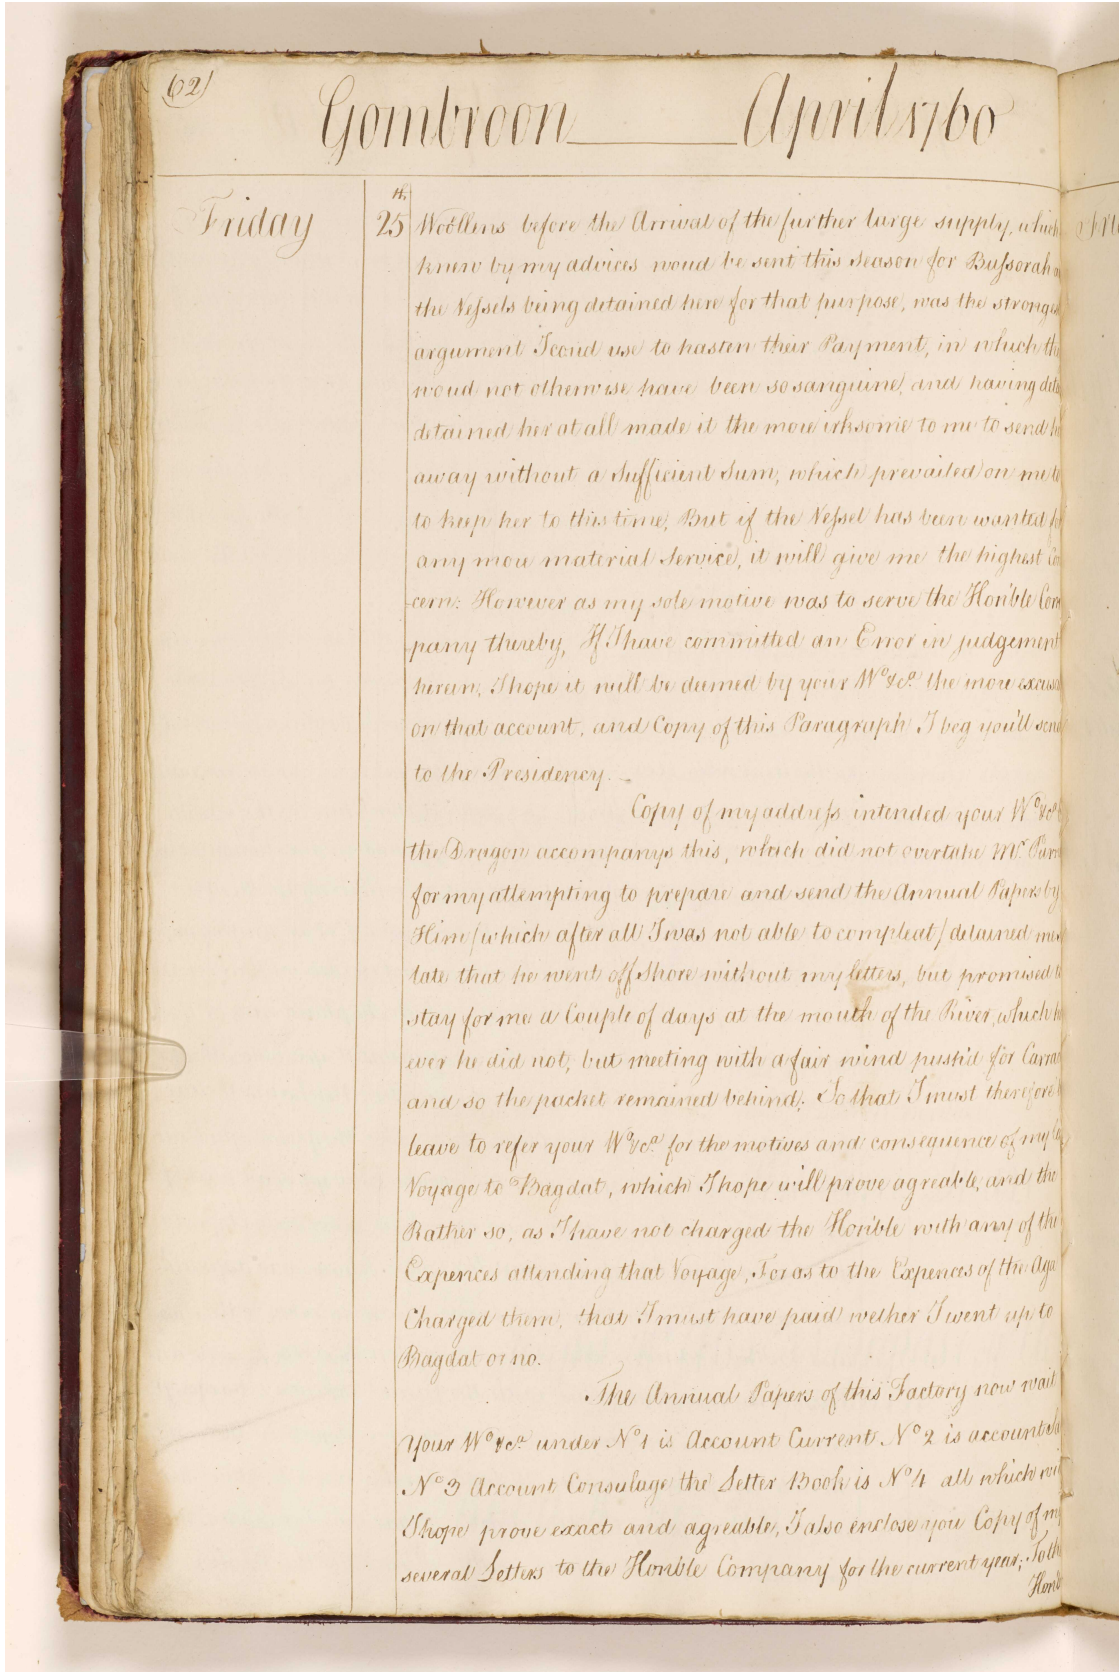 62
Gombroon April 1760
Friday 25th Woollens before the Arrival of the further large supply, which
knew by my advices woud be sent this Season for Bussorah
the Vessels being detained here for that purpose, was the stronges
argument I coud use to hasten their Payment, in which the
woud not otherwise have been so sanguine, and having
detained her at all made it the more irksome to me to send
away without a Sufficient Sum, which prevailed on me to
to keep her to this time, But if the Vessel has been wanted fo
any more material Service, it will give me the highest Con
cern: However as my sole motive was to serve the Honble Com
pany thereby, If I have committed an Error in judgement
herein, I hope it will be deemed by your Wo. &ca. the more excusa
on that account, and Copy of this Paragraph I beg you'll send
to the Presidency.
Copy of my address intended your Wo. &ca.
the Dragon accompanys this, which did not overtake Mr.
for my attempting to prepare and send the Annual Papers by
Him (which after all I was not able to compleat) detained me
late that he went off Shore without my letters, but promised to
stay for me a Couple of days at the mouth of the River, which
ever he did not, but meeting with a fair wind push'd for Carra
and so the packet remained behind; So that I must therefore
leave to refer your Wo. &ca. for the motives and consequence of my
Voyage to Bagdat, which I hope will prove agreable, and the
Rather so, as I have not charged the Honble with any of the
Expences attending that Voyage, For as to the Expences of the Aga
Charged them, that I must have paid wether I went up to
Bagdat or no.
The Annual Papers of this Factory now wait
Your Wo. &ca. under No. 1 is Account Current No. 2 is account
No. 3 Account Consulage the Letter Book is No. 4 all which
I hope prove exact and agreable, I also enclose you Copy of my
several Letters to the Honble Company for the current year; To the
Honb